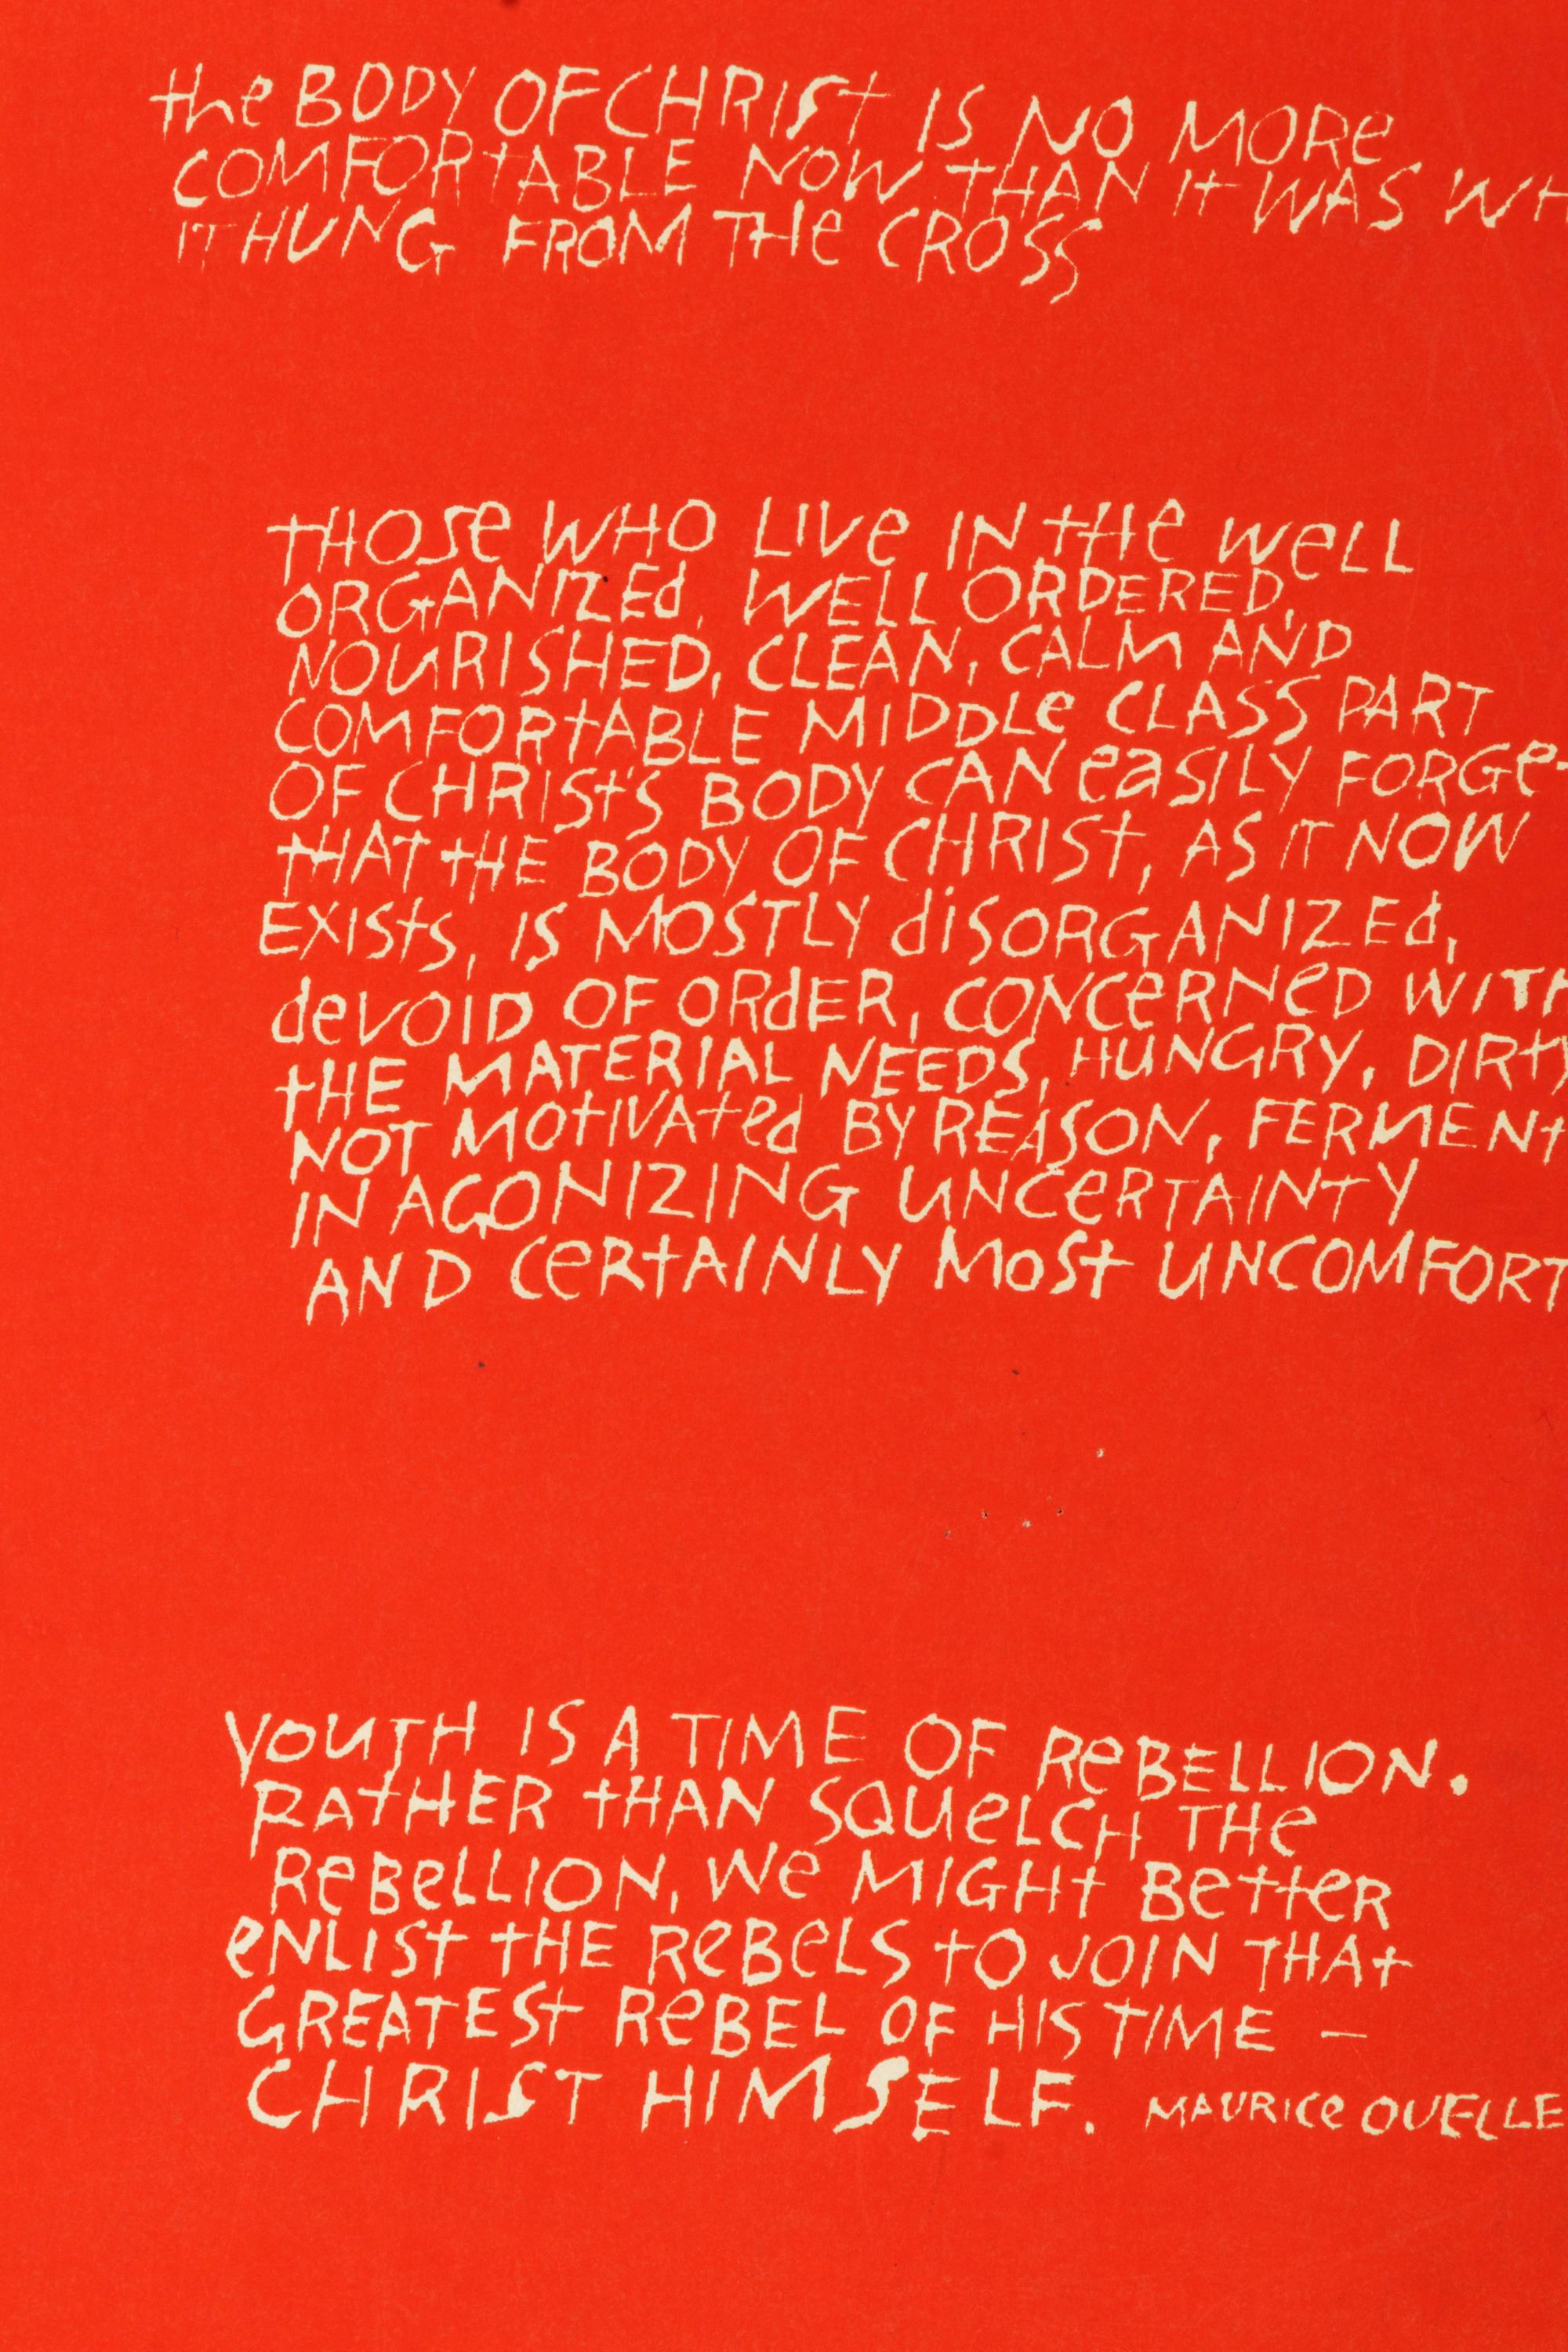 the BODY OF CHRIST IS NO MORe
COMFORTABLE NOW THAN It WAS WH
IT HUNG FROM THe CROSS
THOSe WHO LIVe IN tHe WeLL
ORGANIZEd, WELL ORDERED,
NOURISHED, CLEAN, CALM AND
COMFORtABLE MIDDLe CLASS PART
OF CHRISt'S BODY CAN eaSILY FORGe
tHAT tHE BODY OF CHRISt, AS IT NOW
EXISts, IS MOSTLY diSORGANIZEd,
deVOID OF ORdER, CONCeRNeD WITH
tHE MATERIAL NEEDS, HUNGRY, DIRtY
NOT MOtIVAted BY REASON, FERMENt
IN AGONIZING UNCeRTAINTY
AND CeRtAINLY MoSt UNCOMFORT
YOUTH IS A TIME OF ReBELLION.
RAtHER tHAN SQUeLCH THe
ReBeLLION, We MIGHt BetteR
eNLISt tHE ReBeLS tO JOIN THAt
GREATESt ReBEL OF HIS TIME —
CHRIST HIMSELF. MAURICe OUELLE